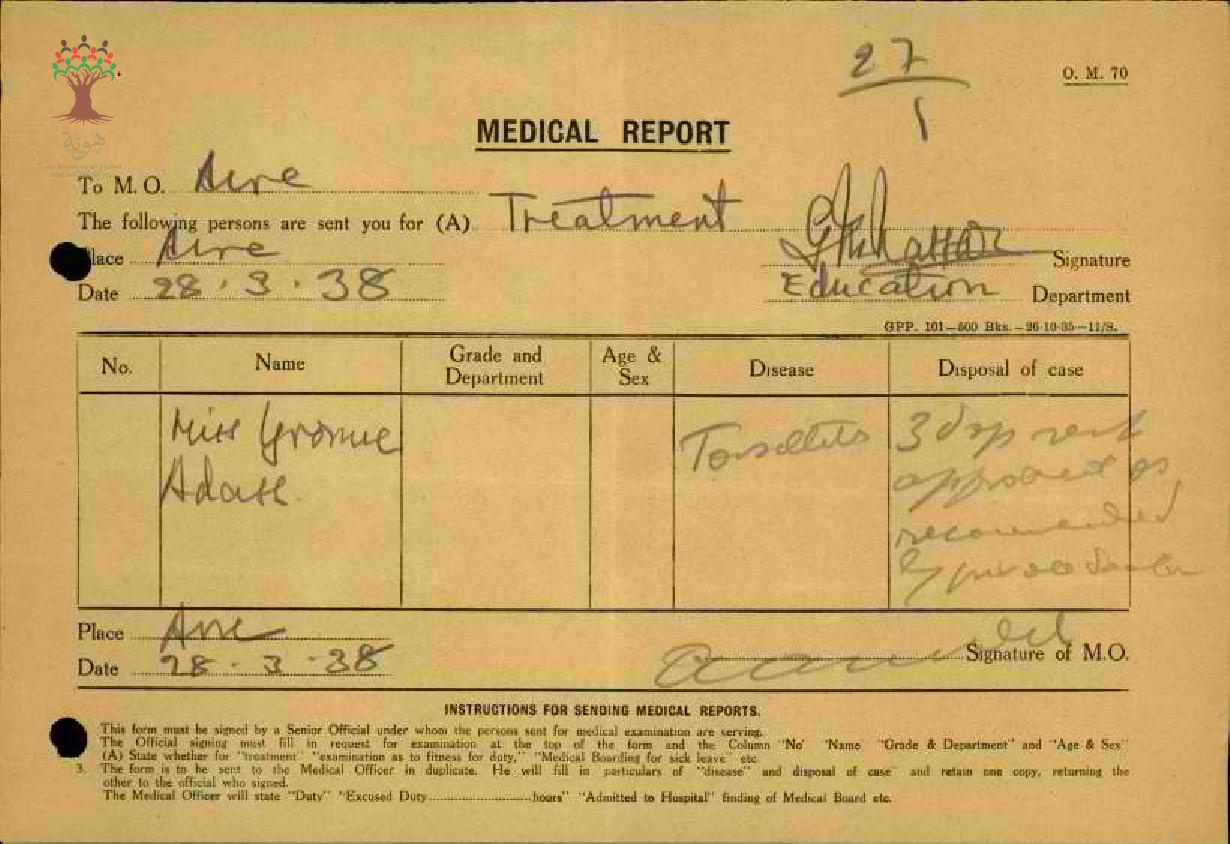 هوية
27
1
O. M. 70
MEDICAL REPORT
To M. O. Acre
The following persons are sent you for (A) Treatment
Place Acre
Signature
Date 28 . 3 . 38
Education Department
GPP. 101—500 Bks.—26-10-35—11/S.
No.
Name
Grade and Department
Age & Sex
Disease
Disposal of case
Miss
Tonsillitis
3 days rest
approved as
recommended
by
Place Acre
Signature of M.O.
Date 28 - 3 - 38
INSTRUCTIONS FOR SENDING MEDICAL REPORTS.
This form must be signed by a Senior Official under whom the persons sent for medical examination are serving.
The Official signing must fill in request for examination at the top of the form and the Column "No" "Name "Grade & Department" and "Age & Sex"
(A) State whether for "treatment" "examination as to fitness for duty," "Medical Boarding for sick leave" etc
3. The form is to be sent to the Medical Officer in duplicate. He will fill in particulars of "disease" and disposal of case" and retain one copy, returning the
other to the official who signed.
The Medical Officer will state "Duty" "Excused Duty..............................hours" "Admitted to Hospital" finding of Medical Board etc.